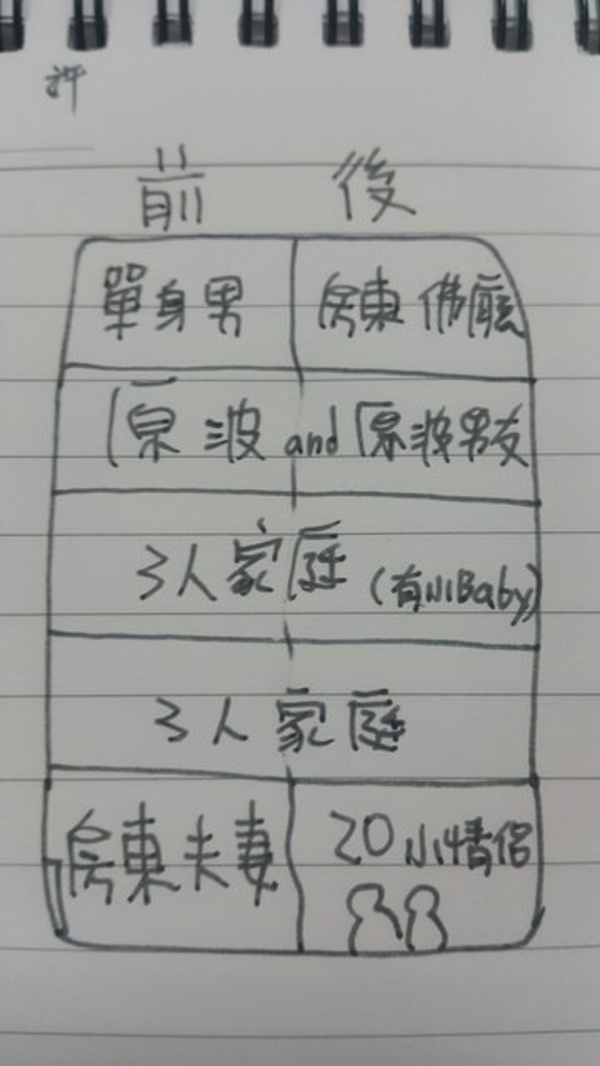 評
前 後
單身男 房東佛廳
原波 and 原波男友
3人家庭 (有小Baby)
3人家庭
房東夫妻 20小情侶